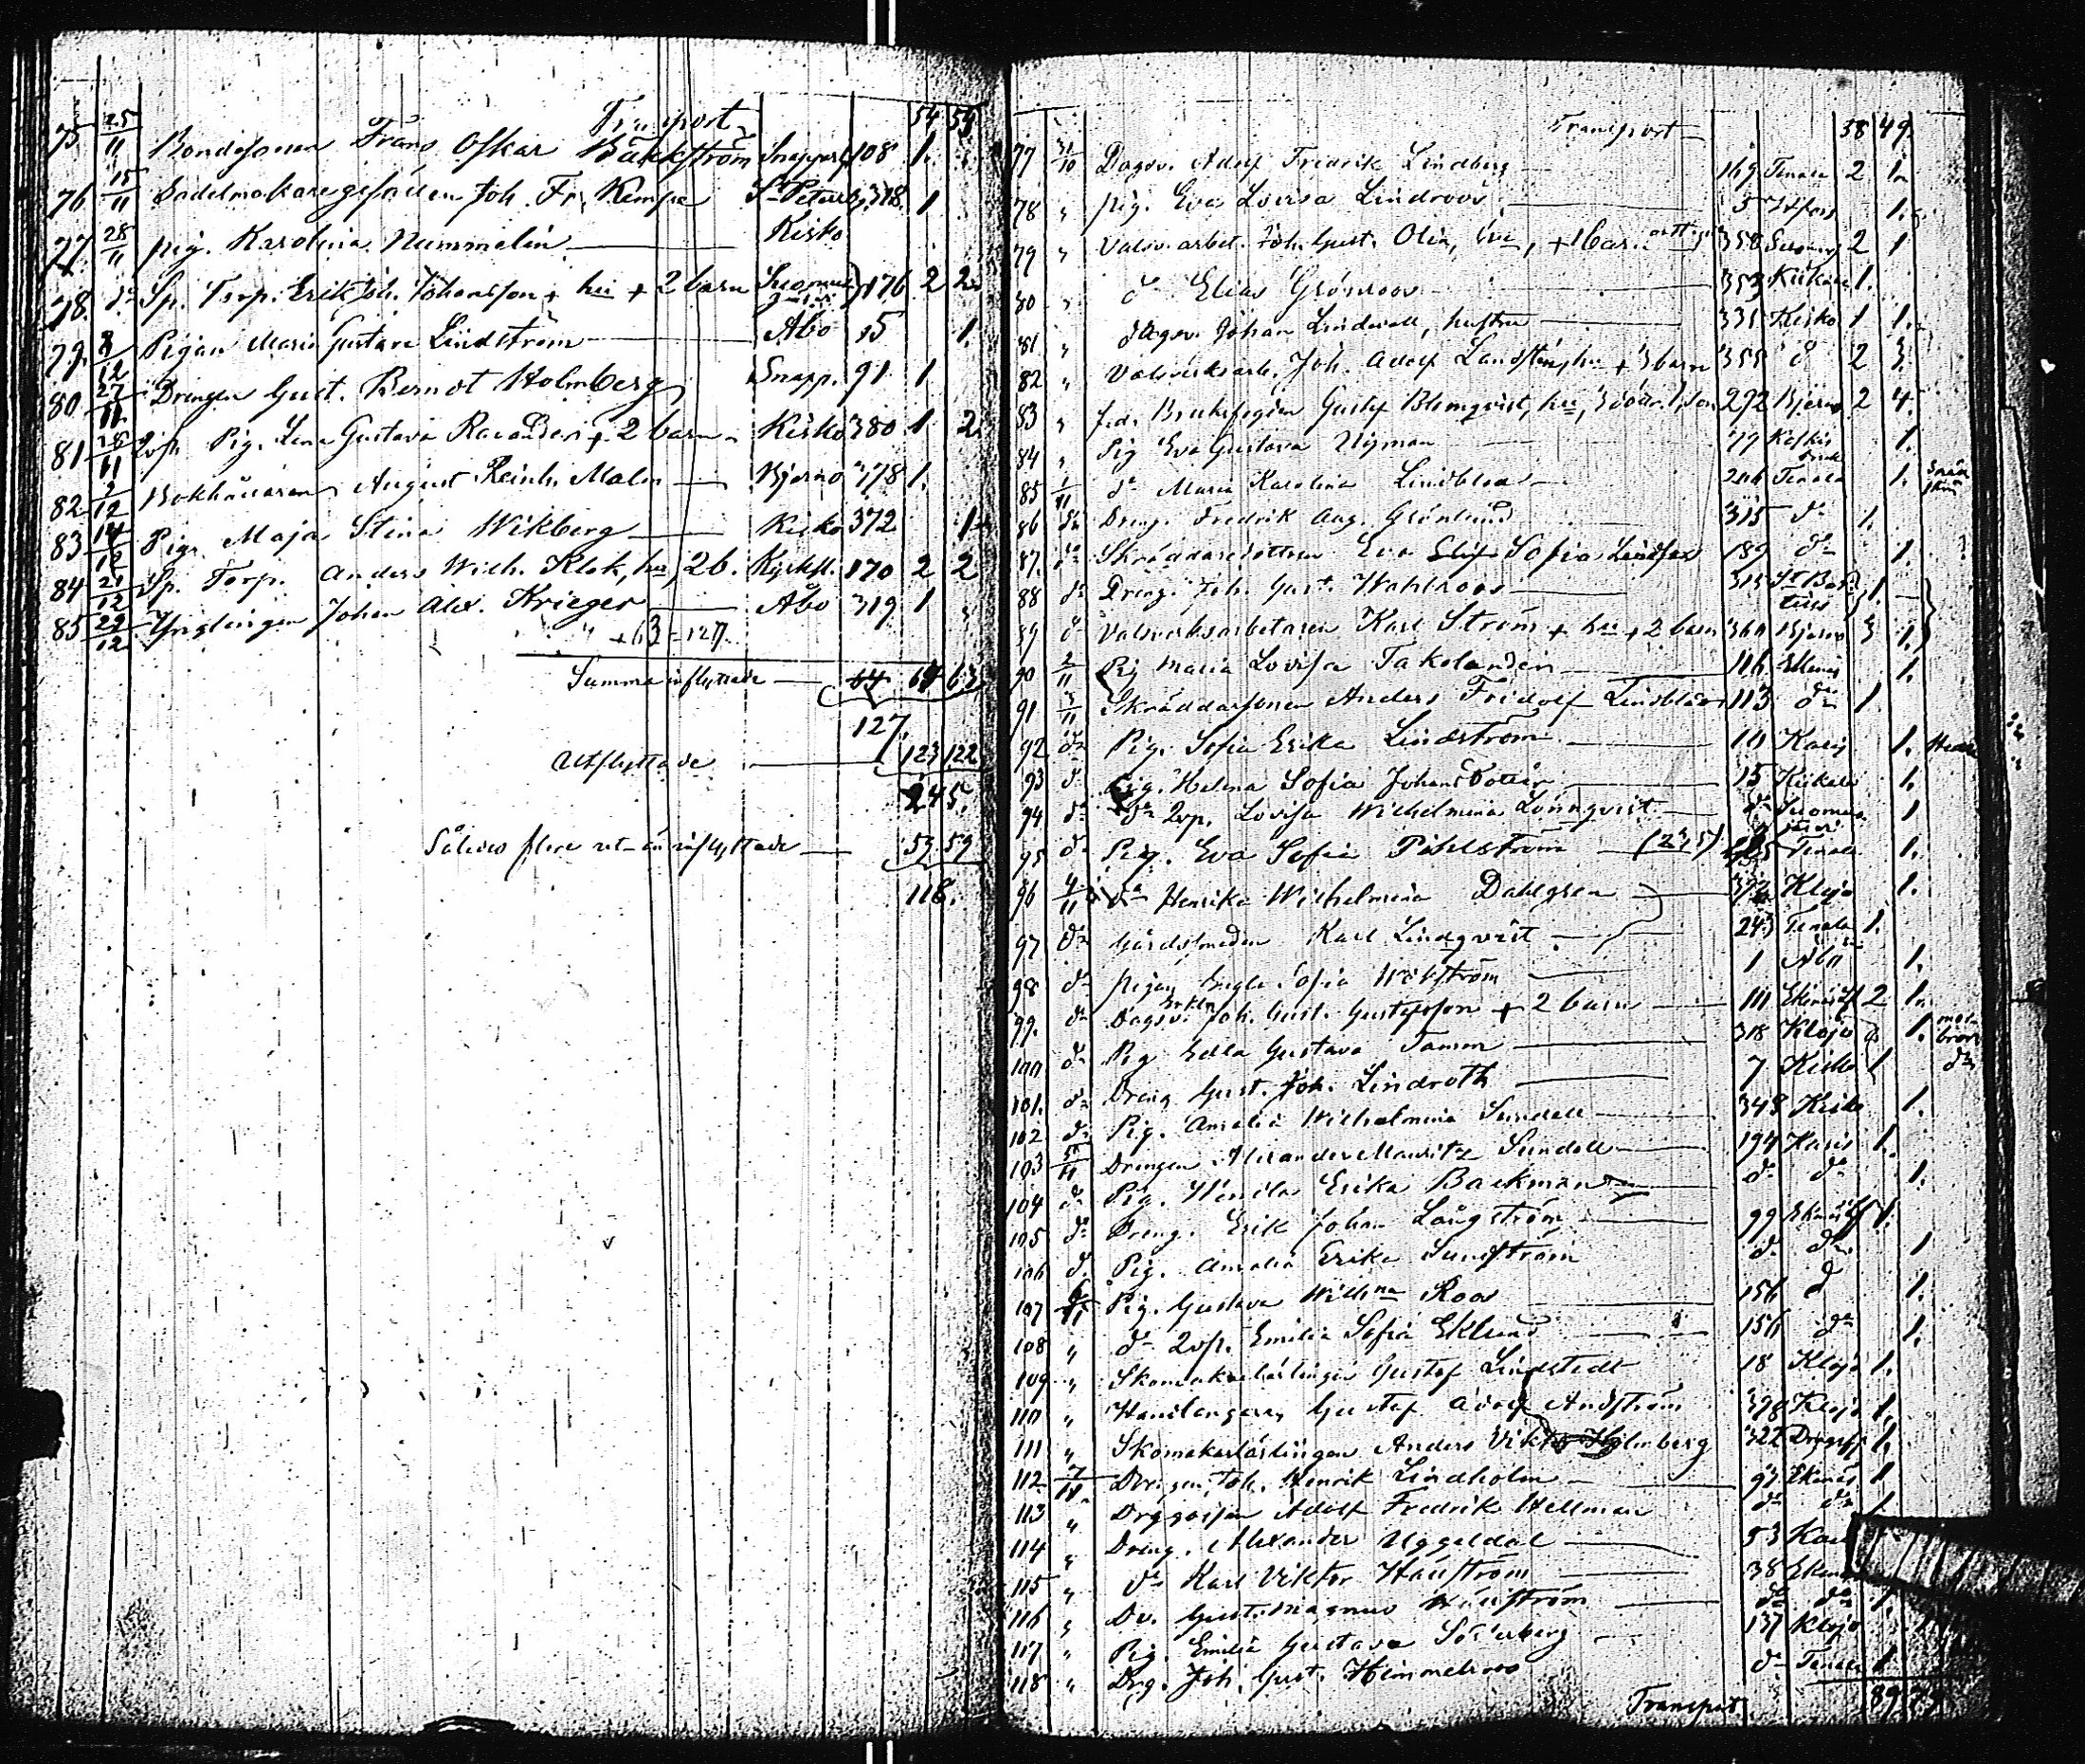 Transport 54 54
75 25/11 Bondesonen Frans Oskar Bäckström Snappert. 108 1.
76 15/11 Sadelmakaregesällen Joh. Fr. Kempe St Petersb. 318 1
77 28/11 pig. Karolina Nummelin Kisko
78. do Sp. Torp. Erik Joh. Johansson + hu + 2 barn Suomusjärvi 176 2 2
79. 8/12 Pigan Maria Gustava Lindström Åbo 15 1.
80 27/11 Drengen Gust. Berndt Holmberg Snapp. 91 1
81 28/11 Pig. Lena Gustava + 2 barn Kisko 380 1 2
82 2/12 Bokhållaren August Reinh. Malm Bjerno 378 1.
83 14/12 Pig. Maja Stina Wikberg Kisko 372 1
84 21/12 Sp. Torp. Anders Wilh. Klok, hu, 2 b. Kyrksl. 170 2 2
85 29/12 Ynglingen Johan Alex. Krieger Åbo 319 1
+ 63 = 127
Summa inflyttade 64 64 63
127.
Utflyttade 123 122
245.
Således flere ut- än inflyttade 59 59
118.
Transport 38 49.
77 31/10 Dagsv. Adolf Fredrik Lindberg 169 Tenala 2 1
78 " pig. Eva Lovisa Lindroos 5 1.
79 " Valsv. arbet. Joh. Gust. Olin, hu, + 1 barn 358 2 1
80 " do Elias Grönroos 353 Kiikala 1.
81 " Dagsv. Johan Lindwall, hustru 331 Kisko 1 1.
82 " Valsverksarb. Joh. Adolf hu + 3 barn 355 do 2 3.
83 " f.d. Bruksfogden Gustaf Blomqvist, hu, 3 döttr. 1 son 272 Bjerno 2 4.
84 " Pig Eva Gustava Nyman 79 Kisko 1.
85 1/11 do Maria Karolina Lindblad 206 Tenala 1.
86 do Dreng. Fredrik Aug. Grönlund 315 do 1.
87. do Skräddaredottern Eva Sofia 189 do 1.
88 do Dreng. Joh. Gust. Wahlroos 315 1.
89 do Valsverksarbetaren Karl Ström + hu + 2 barn 360 Bjerno 3 1.
90 2/11 Pig Maria Lovisa Takolander 116 Ekenäs 1.
91 3/11 Skräddarsonen Anders Fridolf Lindblad 113 do 1
92 do Pig. Sofia Erika Lindström 10 Karis 1.
93 do Pig. Helena Sofia Johansdotter 15 Kiikala 1.
94 do do Lovisa Wilhelmina Lönnqvist do Suomusjärvi 1
95 do Pig. Eva Sofia Pihlström Tenala 1.
96 4/11 do Henrika Wilhelmina Dahlgren Klojo 1.
97 do Gårdsmeden Karl Lindqvist 243 Tenala 1.
98 do pigan Engla Sofia Wikström 1 Åbo 1.
99. do Dagsv. Enkln Joh. Gust. Gustafsson + 2 barn 111 Ekenäs lf 2 1.
100 do Pig Edla Gustava Tamm 318 Klojo 1.
101. do Dreng Gust. Joh. Lindroth 7 Kisko 1
102 do Pig. Amalia Wilhelmina Sundell 348 Kisko 1.
103 5/11 Drengen Alexander Mauritz Sundell 194 Karis 1.
104 do Pig. Wendla Erika Backman do do 1.
105 do Dreng. Erik Johan Långström 99 Ekenäs lf 1.
106 do Pig. Amalia Erika Sundström do do 1
107 6/11 Pig. Gustava Wilhna Roos 156 do 1.
108 " do Emilia Sofia Eklund 156 do 1.
109 " Skomakarlärlingen Gustaf Lindstedt 18 Klojo 1.
110 " Handlangaren Gustaf Adolf Andström 398 Klojo 1.
111 " Skomakarlärlingen Anders Viktor Holmberg 322 1.
112 7/11 Drengen Joh. Henrik Lindholm 97 Ekenäs 1
113 " Drggossen Adolf Fredrik Hellman do do 1
114 " Dreng. Alexander Uggeldal 53
115 " do Karl Viktor Hällström 38
116 " Dr. Gust. Magnus Hällström do do 1.
117 " Pig. Emilia Gustava Söderberg 137 Klojo 1
118 " Drg. Joh. Gust. Himmelroos do Tenala 1
Transport 89